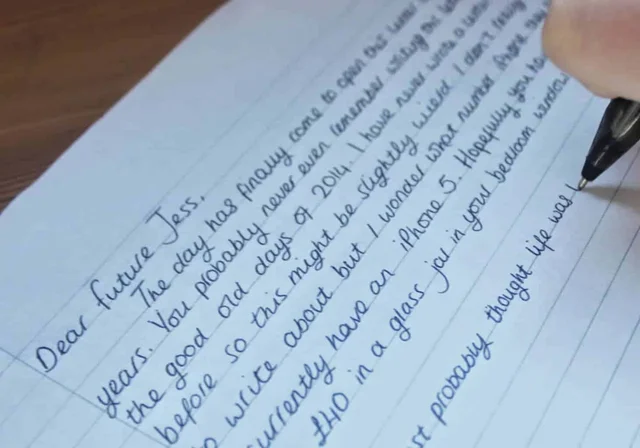 Dear future Jess,
The day has finally come to open this letter
years. You probably never even remember writing this
the good old days of 2014. I have never write a letter
before so this might be slightly wierd. I don't
to write about but I wonder what number iPhone they
currently have an iPhone 5. Hopefully you
£40 in a glass jar in your bedroom window
probably thought life was